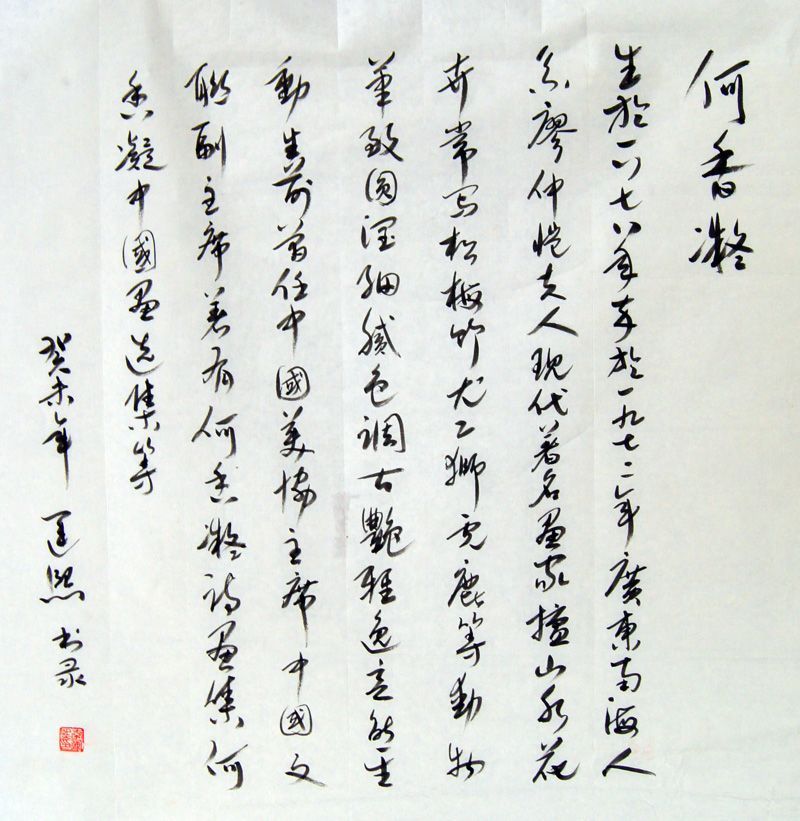 何香凝
生於一八七八年卒於一九七二年廣東南海人
為廖仲恺夫人現代著名画家擅山水花
卉常写松梅竹尤工獅虎鹿等動物
筆致圆潤細膩色调古艷雅逸意能生
動生前曾任中國美協主席中國文
聯副主席著有何香凝詩画集何
香凝中國画选集等
癸未年 熙书录